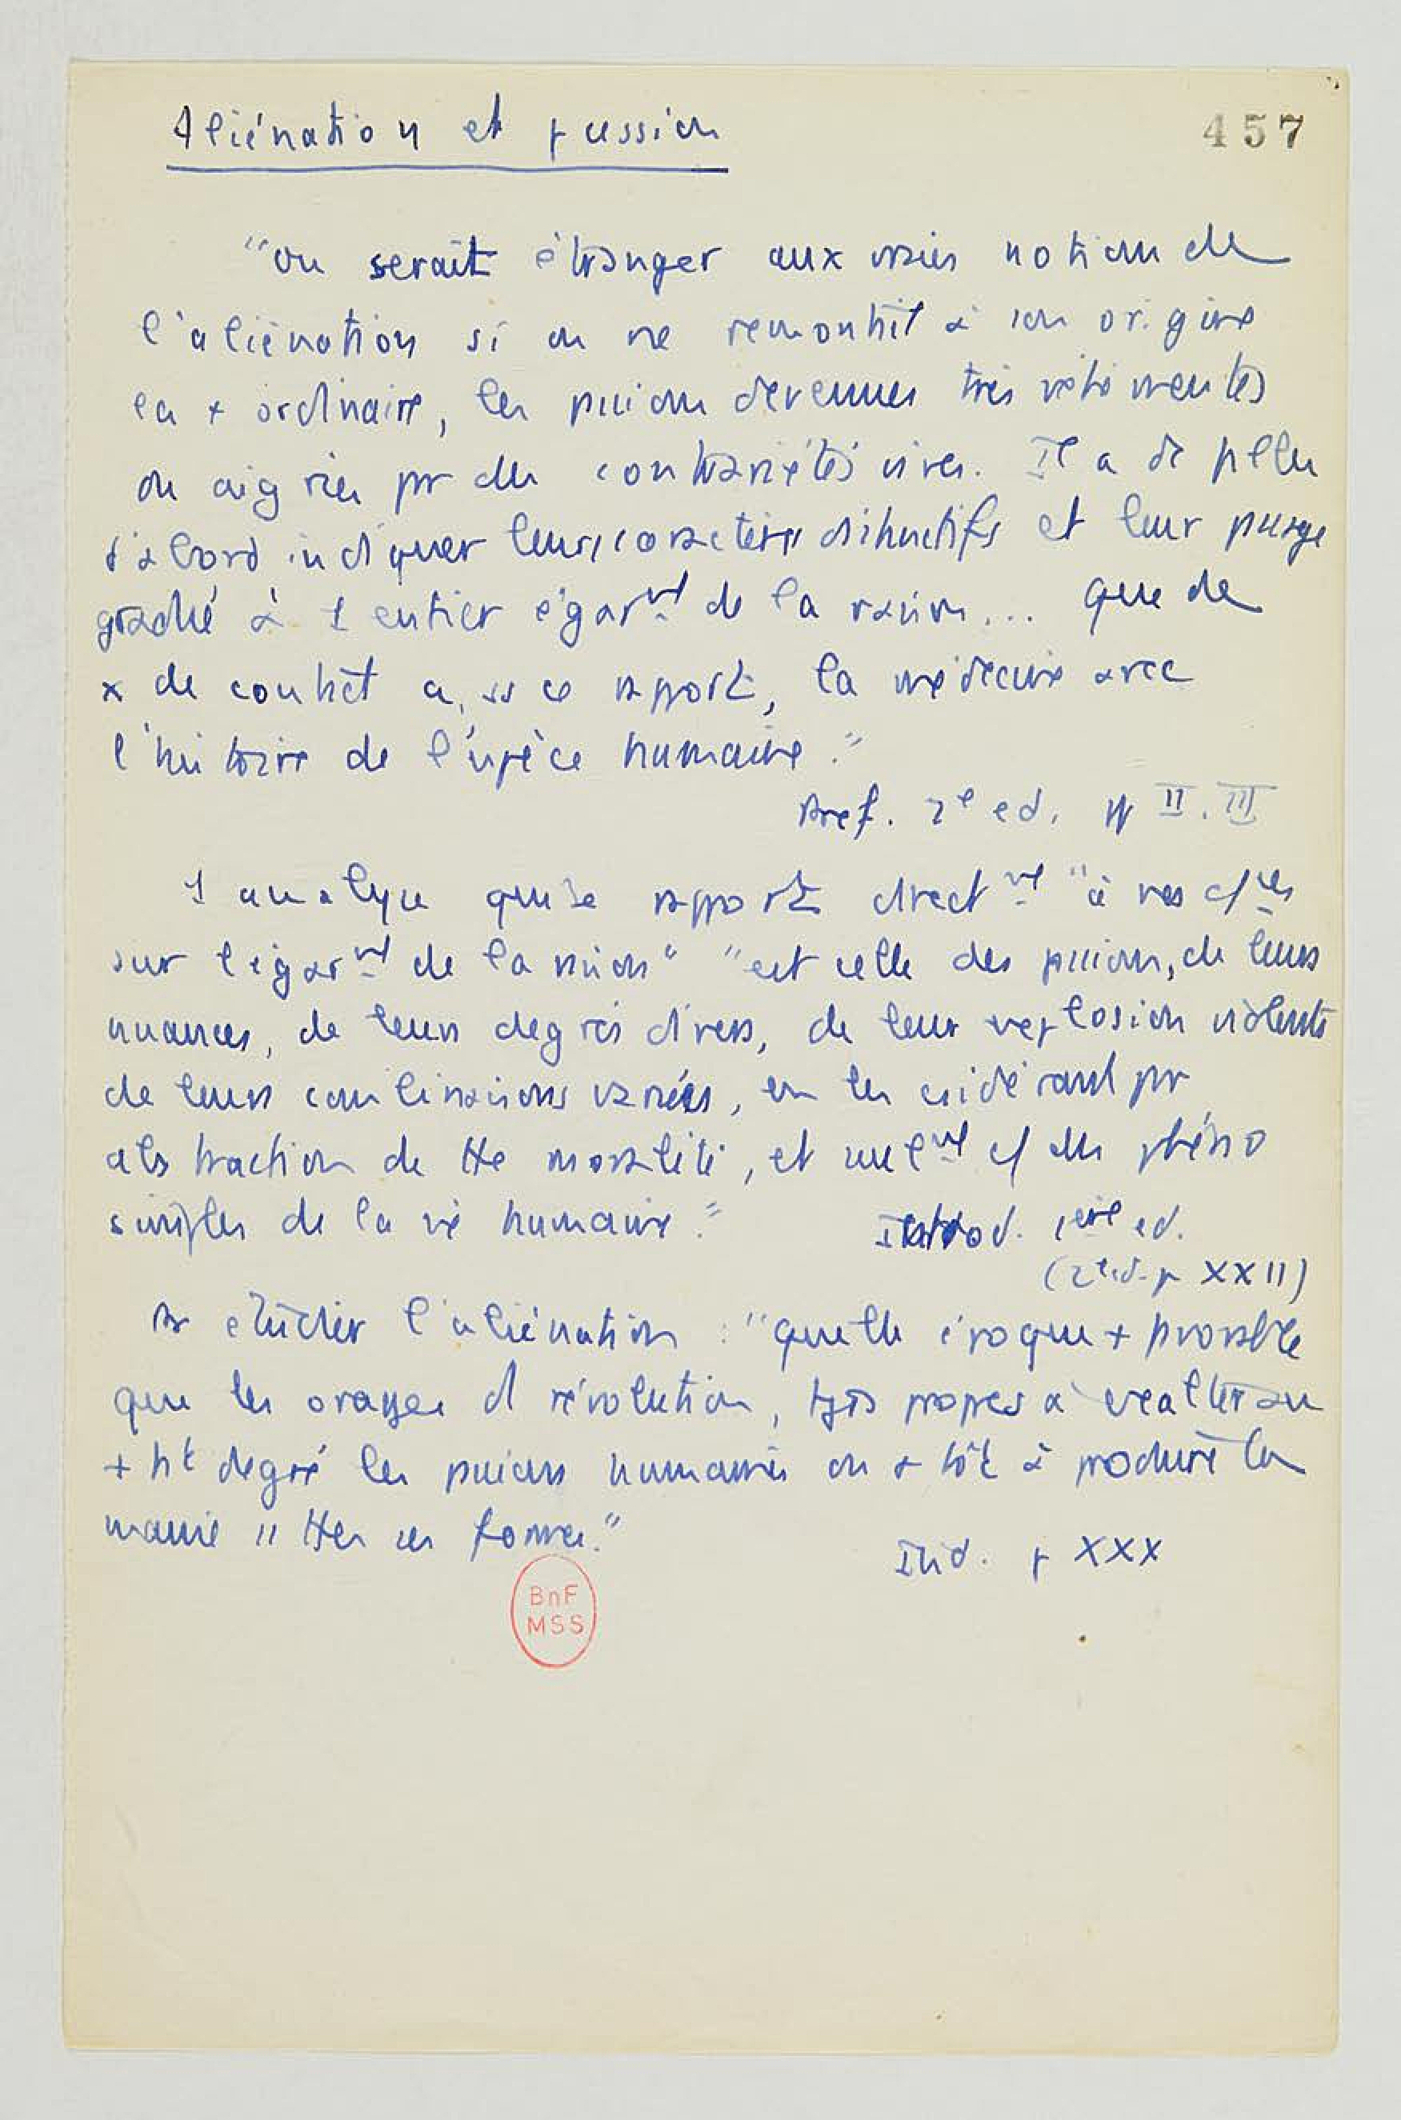 Aliénation et passion
457
"On serait étranger aux vraies notions de
l'aliénation si on ne remontait à son origine
la + ordinaire, les passions devenues très véhémentes
ou aigries pr des contrariétés vives. Il a de fallu
d'abord indiquer leurs caractères distinctifs et leur passage
gradué à 1 entier égarnt de la raison... Que de
x de contact a, ss ce rapport, la médecine avec
l'histoire de l'espèce humaine."
Pref. 2e ed. pp II. III
1 analyse qui se rapporte directnt "à nos
sur l'égarnt de la raison" "est celle des passions, de leurs
nuances, de leurs degrés divers, de leur explosion violente
de leurs combinaisons variées, en les csidérant pr
abstraction de tte moralité, et seulnt cf des phéno
simples de la vie humaine."
Introd. 1ère ed.
(2e ed. p XXII)
Pr étudier l'aliénation : "quelle époque + favorable
que les orages d révolution, tjrs propres à exalter au
+ ht degré les passions humaines ou + tôt à produire la
manie ss ttes ses formes."
Ibid. p XXX
BnF
MSS